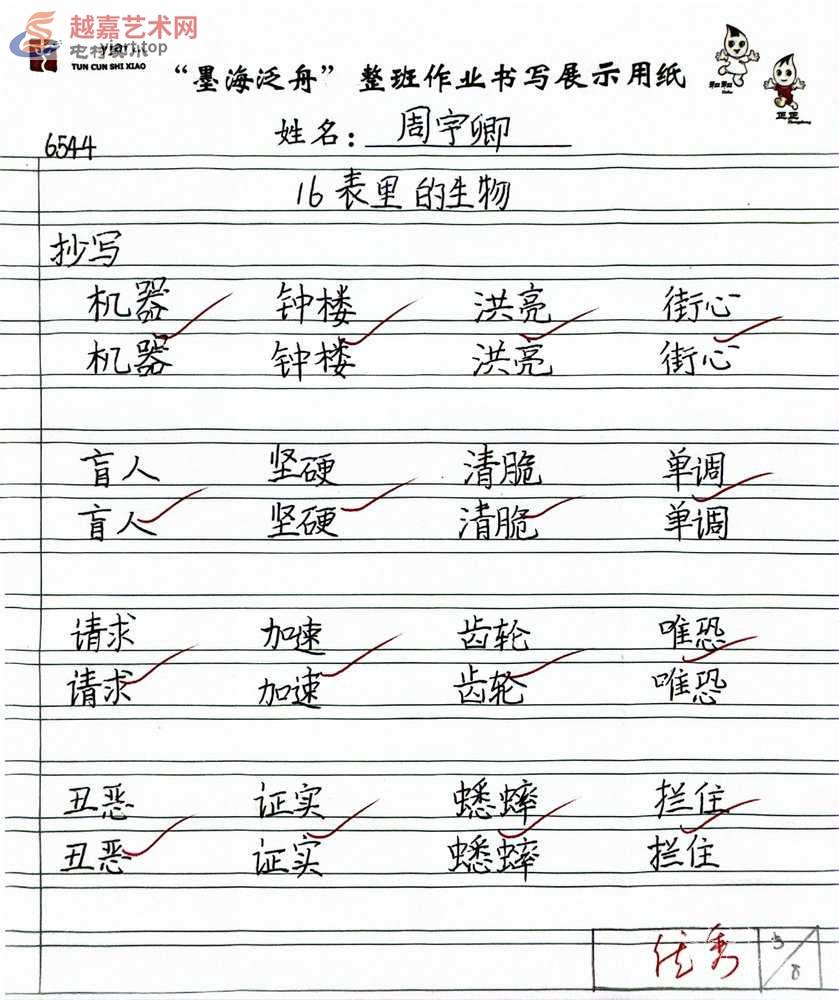 越嘉艺术网
yjart.top
TUN CUN SHI XIAO
“墨海泛舟”整班作业书写展示用纸
和和
正正
6544
姓名：周宇卿
16表里的生物
抄写
机器 钟楼 洪亮 街心
机器 钟楼 洪亮 街心
盲人 坚硬 清脆 单调
盲人 坚硬 清脆 单调
请求 加速 齿轮 唯恐
请求 加速 齿轮 唯恐
丑恶 证实 蟋蟀 拦住
丑恶 证实 蟋蟀 拦住
优秀 5/8